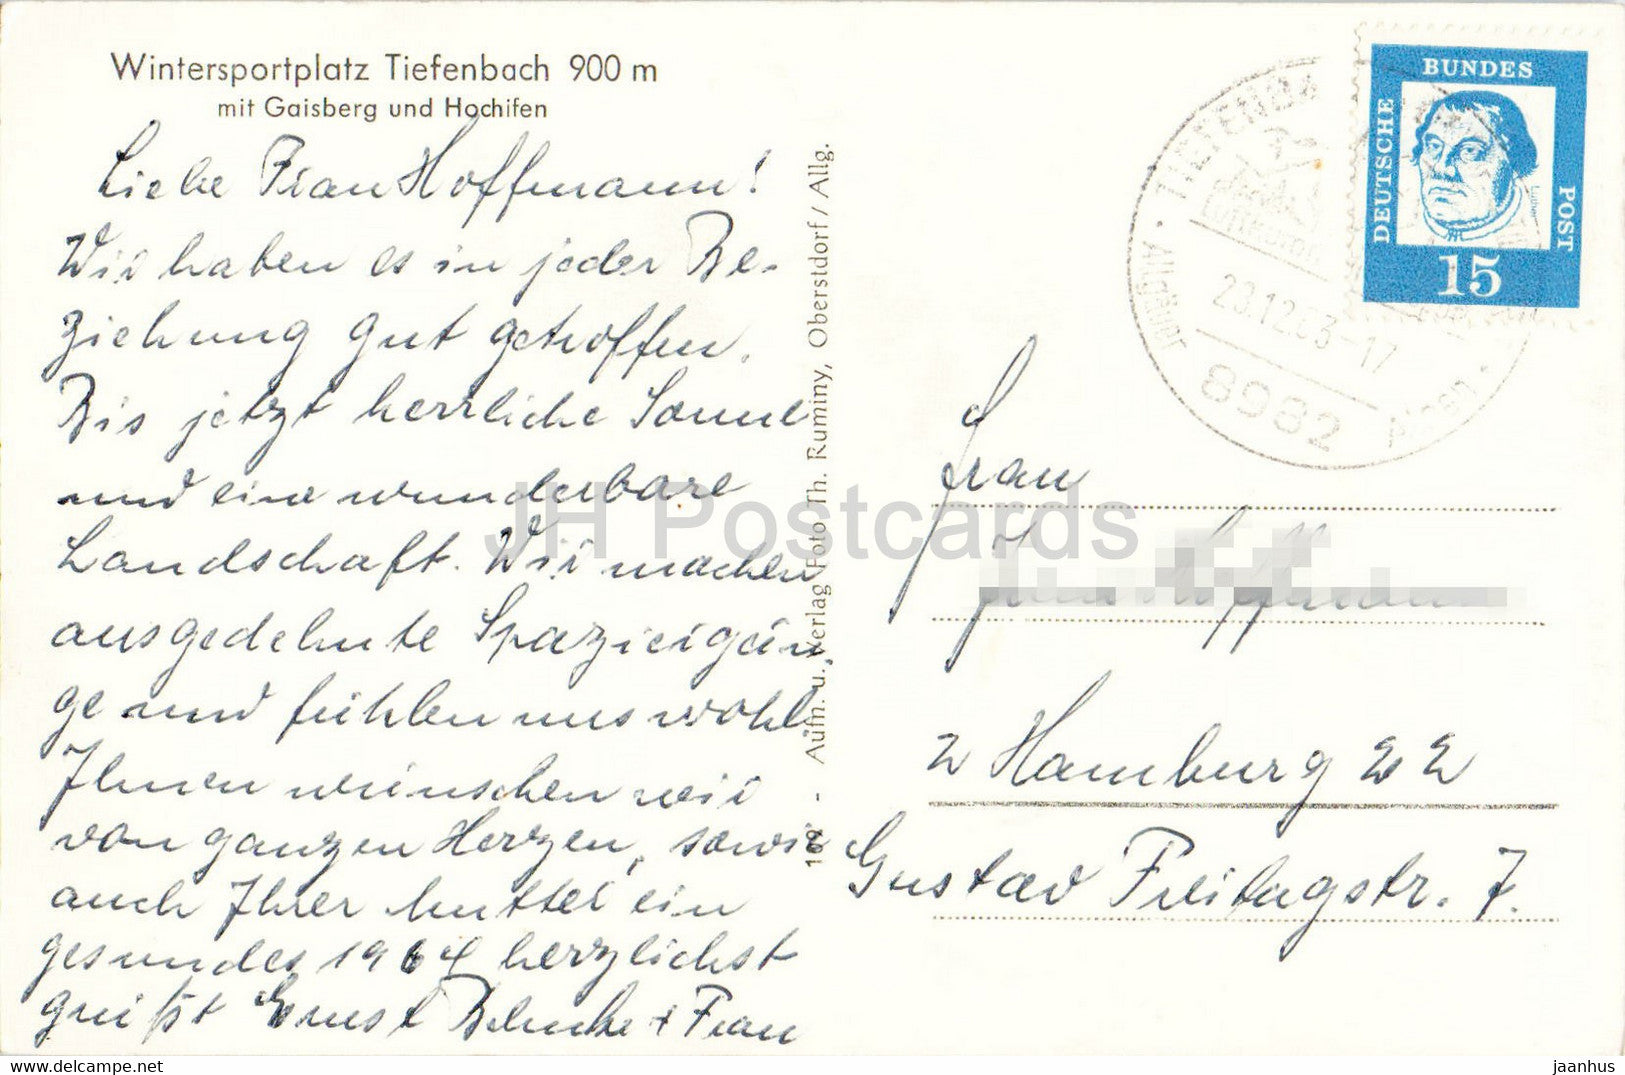 Wintersportplatz Tiefenbach 900 m
mit Gaisberg und Hochifen
Liebe Frau Hoffmann!
Wir haben es in jeder Be-
ziehung gut getroffen.
Bis jetzt herrliche Sonne
und eine wunderbare
Landschaft. Wir machen
ausgedehnte Spaziergän-
ge und fühlen uns wohl
Ihnen wünschen wir
von ganzen Herzen, sowie
auch Ihrer Mutter ein
gesundes 1964 herzlichst
grüßt Ernst + Frau
162 - Aufn. u. Verlag Foto Th. Ruminy, Oberstdorf / Allg.
BUNDES
DEUTSCHE
POST
Luther
15
TIEFENBA
ALLGÄU
23.12.63-17
8982
Frau
2 Hamburg 22
Gustav Freitagstr. 7.
JH Postcards
jaanhus — https://www.jaanhus.ee